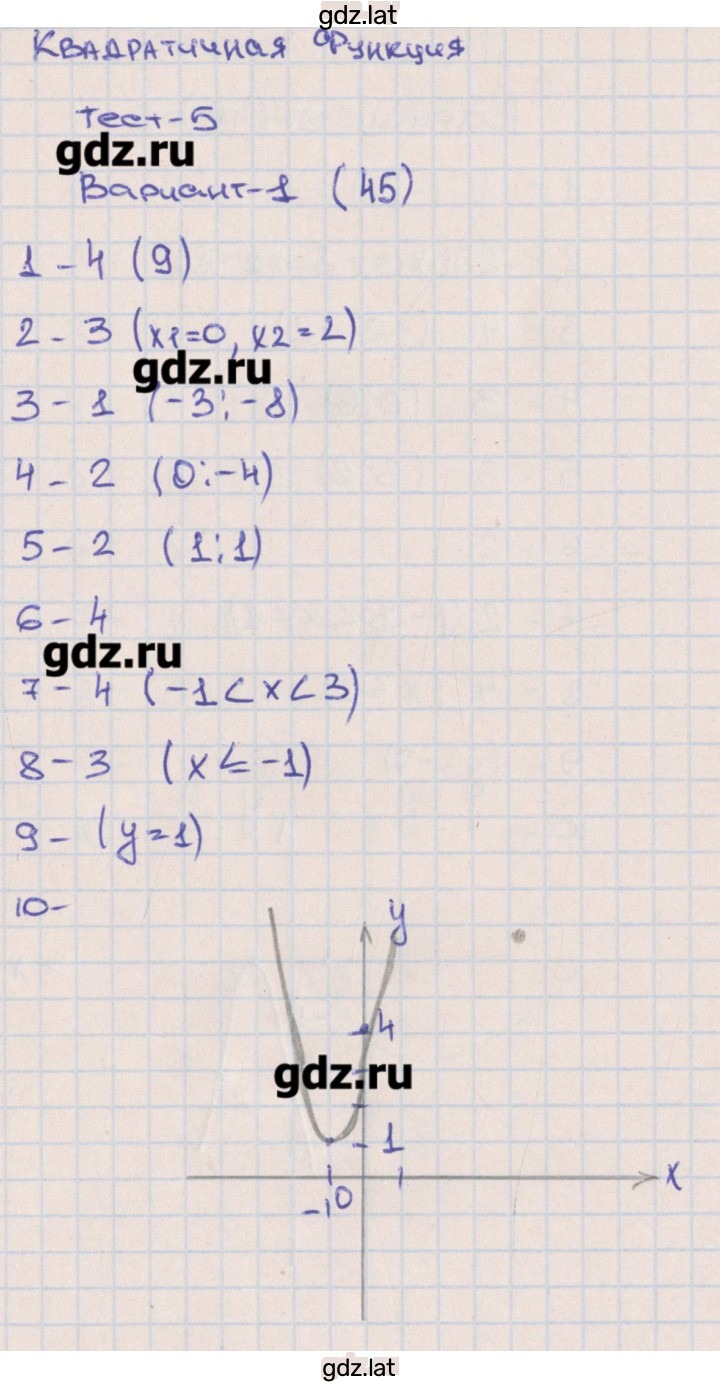 gdz.lat
Квадратичная функция
Тест-5
gdz.ru
Вариант-1 (45)
1 - 4 (9)
2 - 3 (x1=0, x2=2)
gdz.ru
3 - 1 (-3;-8)
4 - 2 (0;-4)
5 - 2 (1;1)
6 - 4
gdz.ru
7 - 4 (-1<x<3)
8 - 3 (x≤-1)
9 - (y=1)
10-
y
4
gdz.ru
1
x
-1 0
gdz.lat